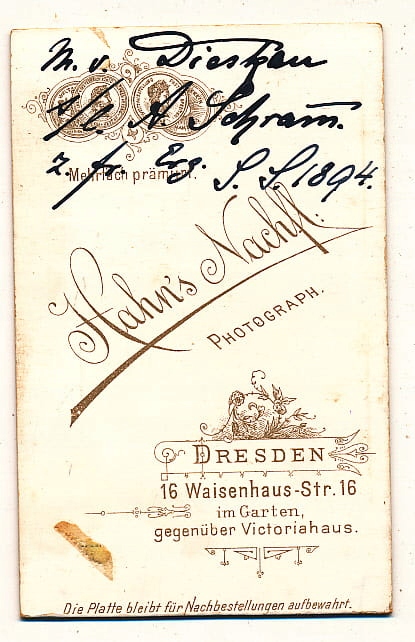 M. v. Dieskau
s/l. A. Schram.
Mehrfach prämiirt.
z. fr. Erg. S. S. 1894.
Hahn's Nachfl.
PHOTOGRAPH.
DRESDEN
16 Waisenhaus-Str. 16
im Garten,
gegenüber Victoriahaus.
Die Platte bleibt für Nachbestellungen aufbewahrt.